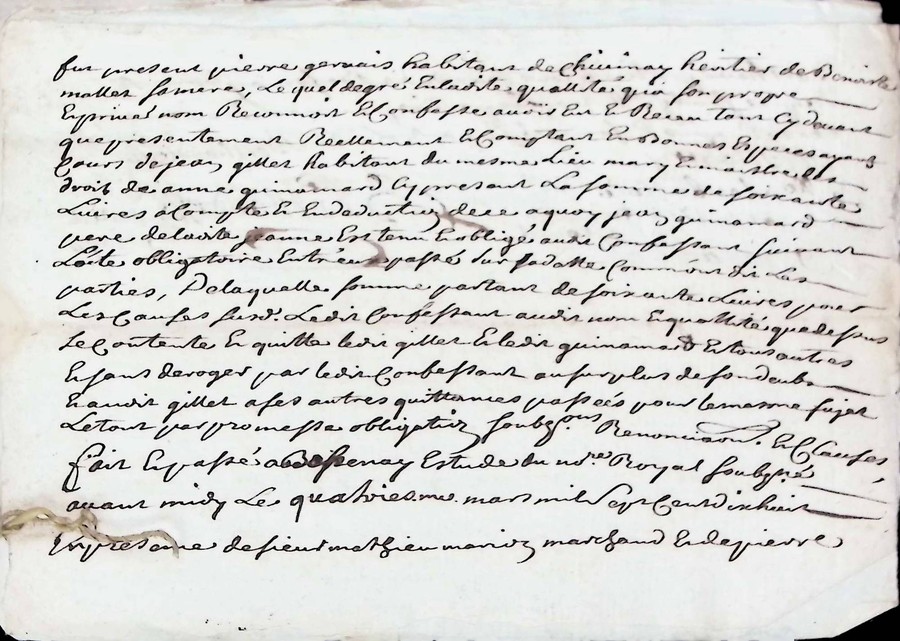 fut present pierre gervais habitant de Chivinay heritier de Benoiste
mallet sa mere, Lequel de gré En ladite quallité qua son propre
Et privé nom Reconnoit Et Confesse avoir Eu Et Receu tant cydevant
que presentement Reellement Et Comptant En bonnes Especes ayant
Cours de jean gillet habitant du mesme Lieu mary Et maistre des
droit de anne guinamard Cy present La somme de soixante
Livres a Compte Et En deduction de ce aquoy jean guinamard
pere de ladite jeanne Est tenu Et obligé audit Confessant suivant
Lacte obligatoire Entre eux passé sur sa datte Comme ont dit Les
parties, De laquelle somme partant de soixante Livres pour
Les Causes susd. Ledit Confessant audit nom Et quallité que dessus
se Contente Et quitte ledit gillet Et ledit guinamard Et tous autres
Et sans deroger par ledit Confessant au surplus de son deub
Et audit gillet a ses autres quittances passées pour le mesme sujet
Le tout par promesse obligation soubz.ons Renonciaon. Et Clauses,
fait Et passé a Bessenay Estude du no.re Royal soubz.né
avant midy Le quatriesme mars mil sept Cent dix huit
En presence de sieur mathieu marion marchand Et de pierre